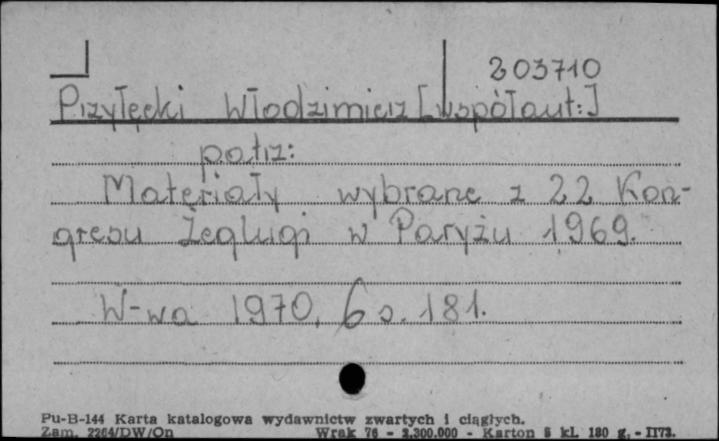 203710
Przyłęcki Włodzimierz [współaut:]
patrz:
Materiały wybrane z 22 Kon-
gresu Żeglugi w Paryżu 1969.
W-wa 1970, 6 s. 181.
Pu-B-144 Karta katalogowa wydawnictw zwartych i ciągłych.
Zam. 2264/DW/On Wrak 76 - 2,300.000 - Karton 5 kl. 180 g. - II73.